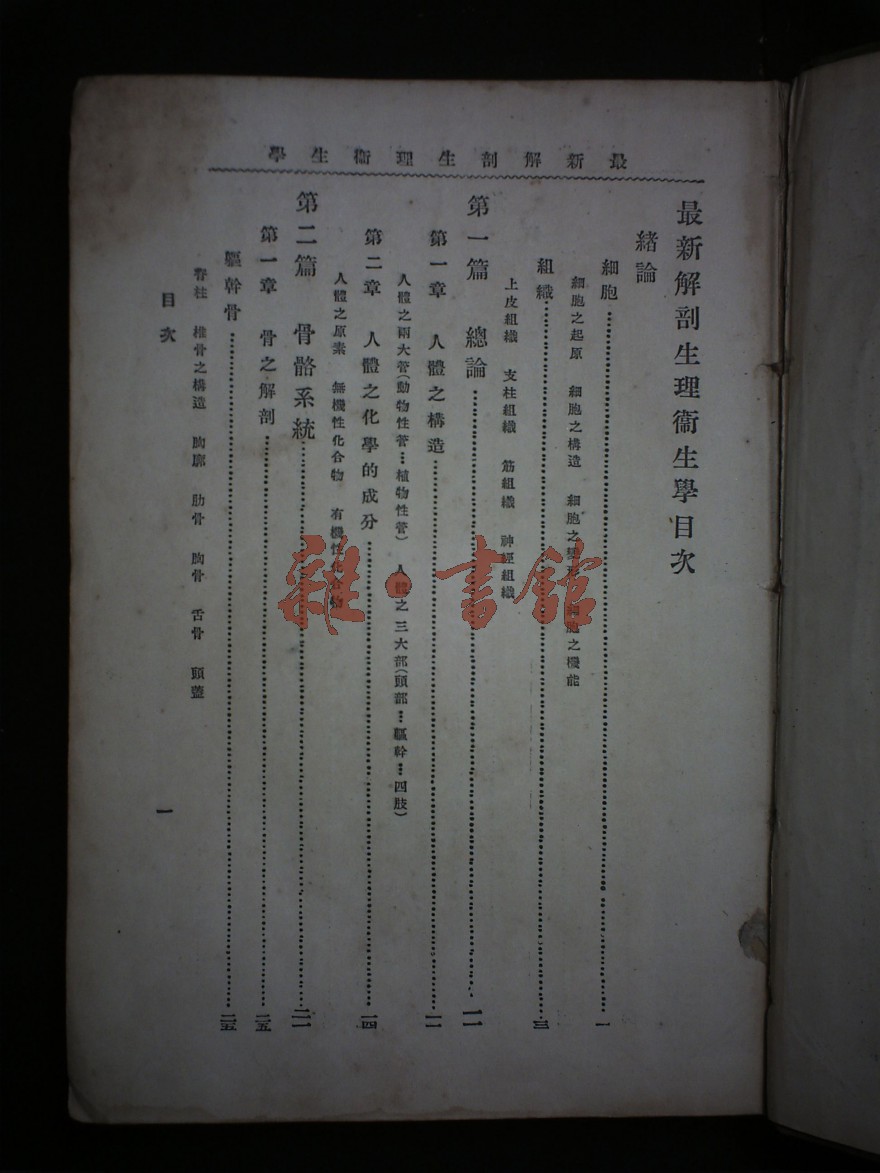 最新解剖生理衞生學
最新解剖生理衞生學目次
緒論
細胞…一
細胞之起原 細胞之構造 細胞之變形 細胞之機能
組織…三
上皮組織 支柱組織 筋組織 神經組織
第一篇 總論…一一
第一章 人體之構造…一一
人體之兩大管(動物性管…植物性管) 人體之三大部(頭部…軀幹…四肢)
第二章 人體之化學的成分…一四
人體之原素 無機性化合物 有機性化合物
第二篇 骨骼系統…二一
第一章 骨之解剖…二五
軀幹骨…二五
脊柱 椎骨之構造 胸廓 肋骨 胸骨 舌骨 頭蓋
目次
一
雜·書館